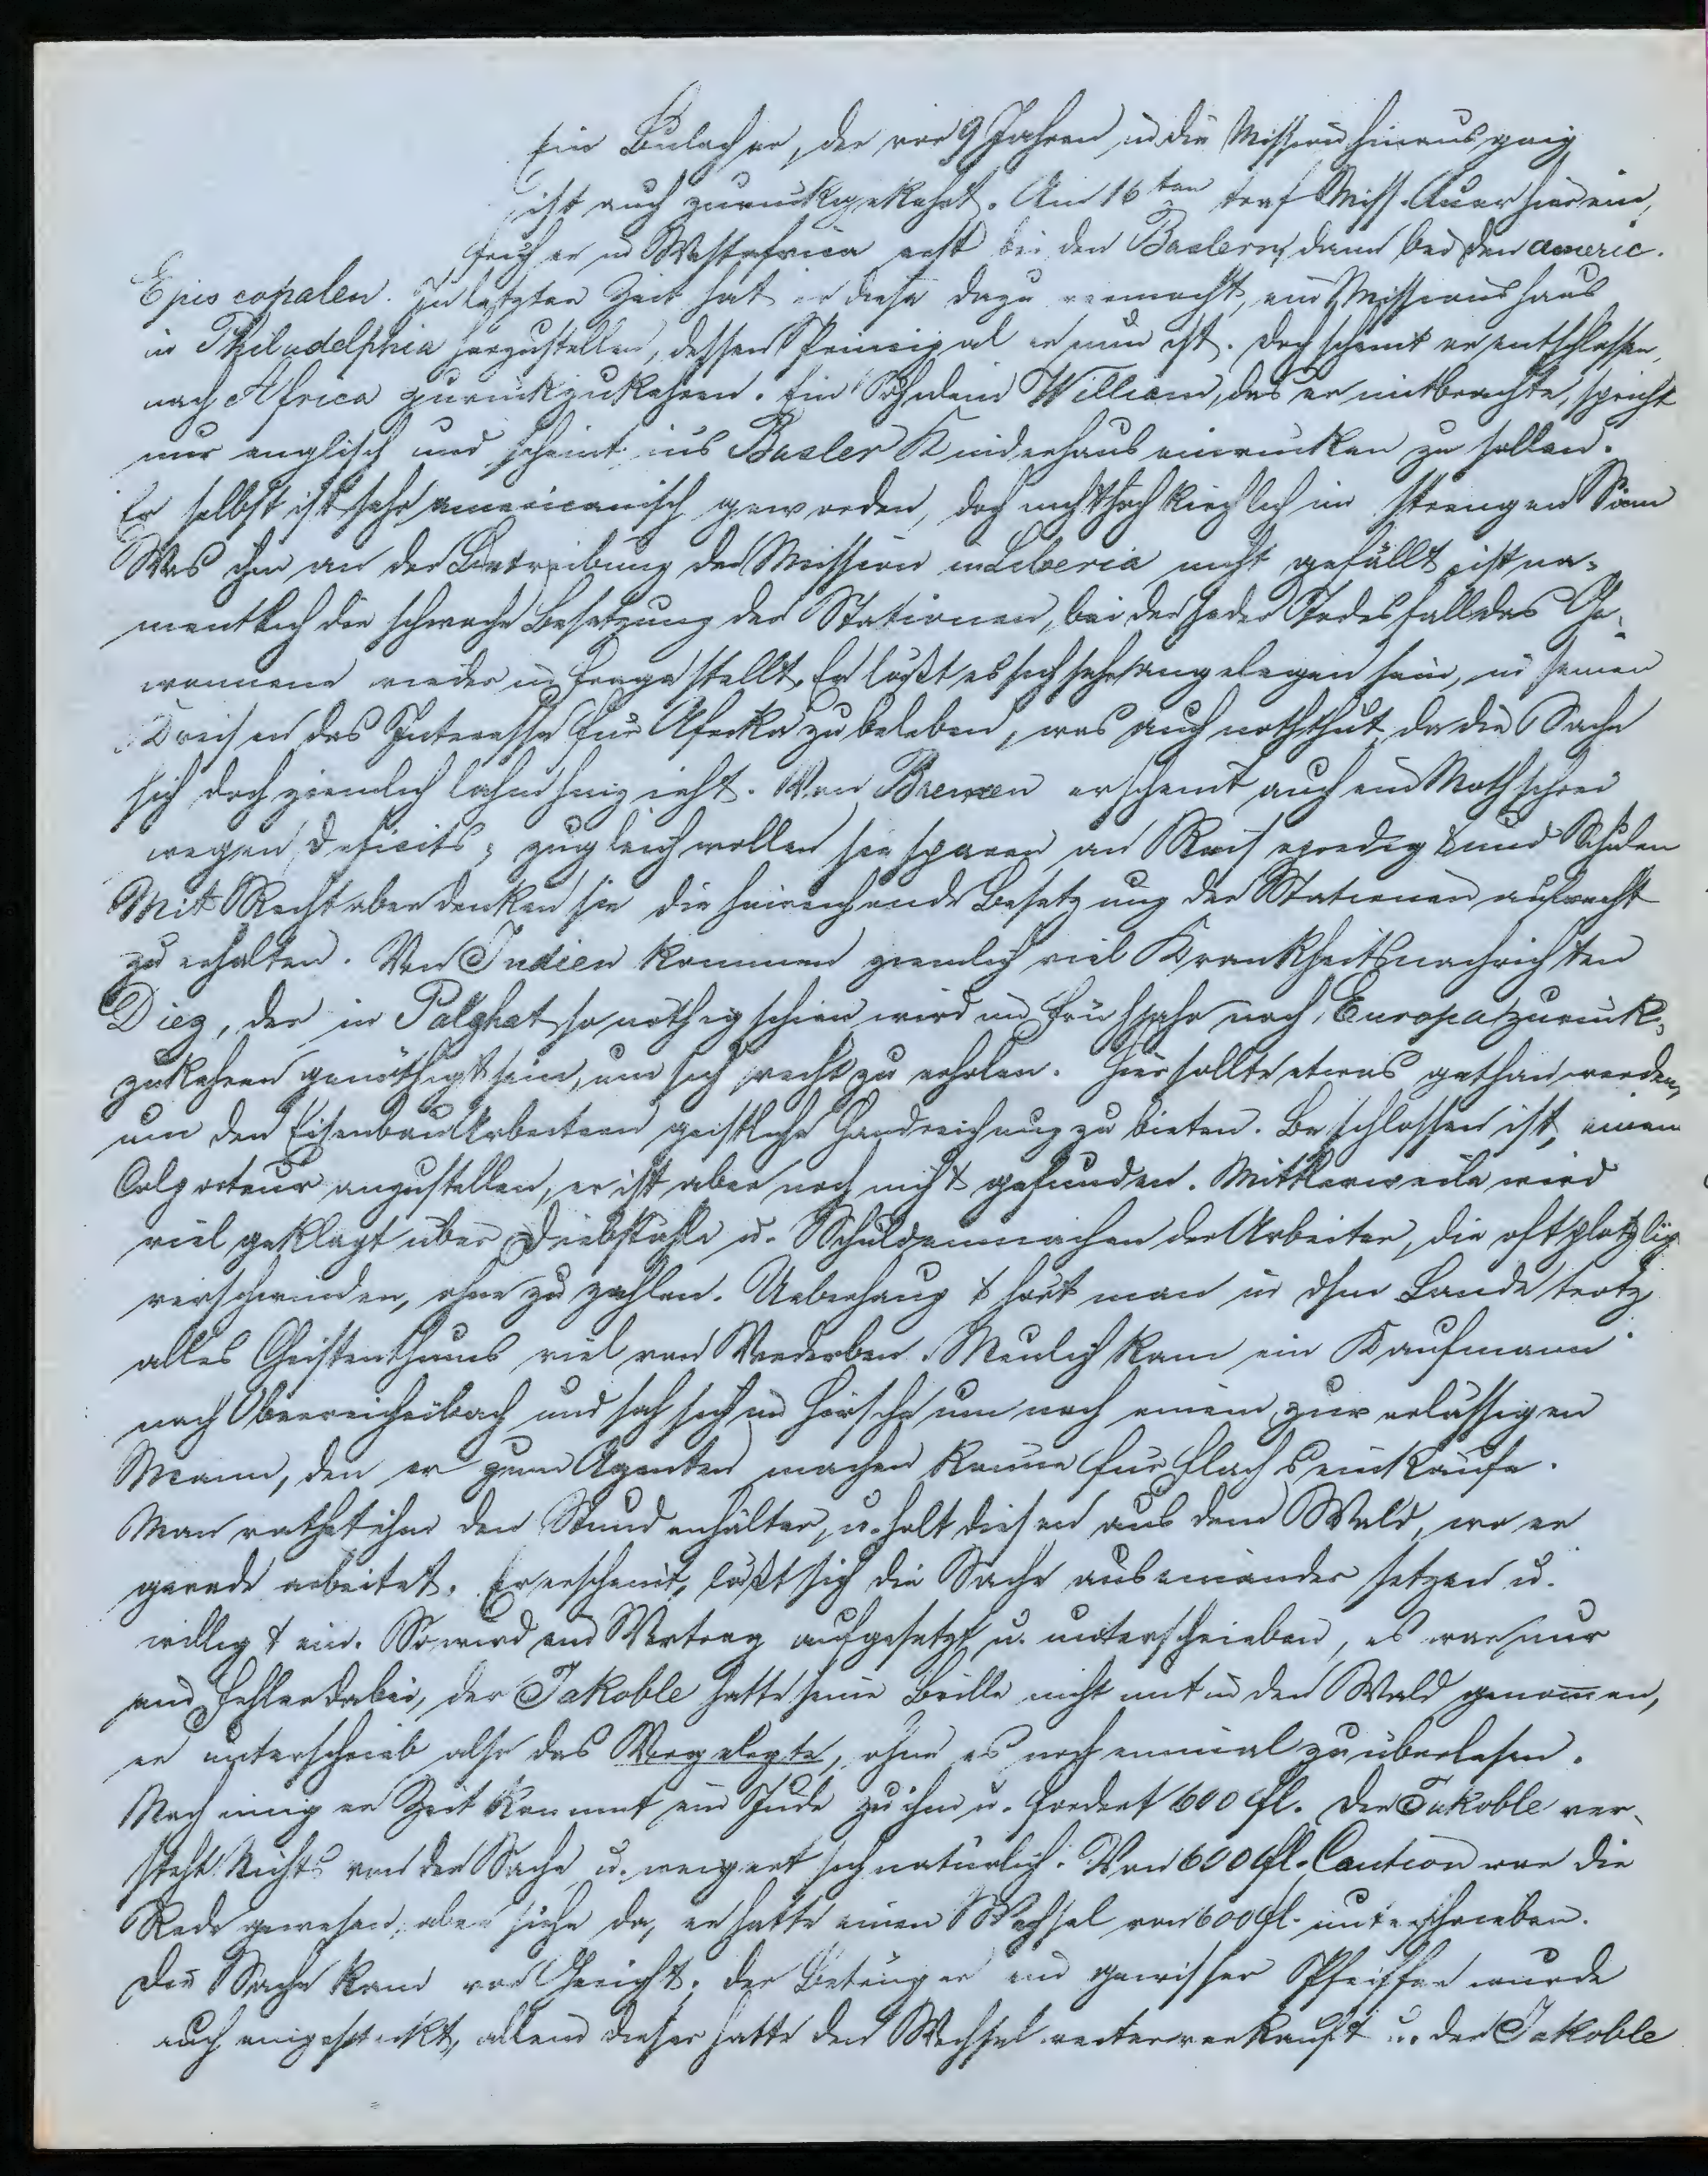 Ein Bulacher, der vor 9 Jahren in die Mission hinausging
ist auch zurückgekehrt. Am 16ten traf Miss. Auer hier ein,
früher in Westafrica erst bei den Baslern, dann bei den americ.
Episcopalen. In letzter Zeit hat er diese dazu vermocht, ein Missionshaus
in Philadelphia herzustellen, dessen Principal er nun ist. Doch scheint er entschlossen,
nach Africa zurückzukehren. Ein Söhnlein William, das er mitbrachte, spricht
nur englisch und scheint ins Basler Kinderhaus einrücken zu sollen.
Er selbst ist sehr americanisch geworden, doch nicht hochkirchlich im strengen Sinn
Was ihm an der Betreibung der Mission in Liberia nicht gefällt ist na-
mentlich die schwache Besetzung der Stationen, bei der jeder Todesfall das Ge-
wonnene wieder in Frage stellt. Er läßt es sich sehr angelegen sein, in seinen
Kreisen das Interesse für Afrika zu beleben, was auch noththut, da die Sache
sich doch ziemlich lahm hinzieht. Von Bremen erscheint auch ein Nothschrei
wegen Deficits; zugleich wollen sie sparen an Reisepredigt und Schulen
Mit Recht aber denken sie die hinreichende Besetzung der Stationen aufrecht
zu erhalten. Von Indien kommen ziemlich viel Krankheitsnachrichten
Diez, der in Palghat so nöthig schien wird im Frühjahr nach Europa zurück-
zukehren genöthigt sein, um sich recht zu erholen. Hier sollte etwas gethan werden,
um den Eisenbauarbeitern geistliche Handreichung zu bieten. Beschlossen ist, einen
Colporteur anzustellen, er ist aber noch nicht gefunden. Mittlerweile wird
viel geklagt über Diebstähle u. Schuldenmachen der Arbeiter, die oft plötzlich
verschwinden, ohne zu zahlen. Ueberhaupt hört man in dem Lande trotz
alles Christenthums viel von Verderben. Neulich kam ein Kaufmann
nach Oberreichenbach und sah sich im Hirsch um nach einem zuverlässigen
Mann, den er zum Agenten machen könne für Flachseinkäufe.
Man rathet ihm den Stundenhälter, u. holt diesen aus dem Wald, wo er
gerade arbeitet. Er erscheint, läßt sich die Sache auseinander setzen u.
willigt ein. So wird ein Vertrag aufgesetzt u. unterschrieben, es war nur
ein Fehler dabei, der Jakoble hatte seine Brille nicht mit in den Wald genommen,
er unterschrieb also das Vorgelegte, ohne es noch einmal zu überlesen.
Nach einiger Zeit kommt ein Jude zu ihm u. fordert 600 fl. Der Jakoble ver-
steht Nichts von der Sache u. weigert sich natürlich. Von 600 fl. Caution war die
Rede gewesen, aber siehe da, er hatte einen Wechsel von 600 fl. unterschrieben.
Die Sache kam vor Gericht. der Betrüger ein gewisser Pfeiffer wurde
auch eingesteckt, allein dieser hatte den Wechsel weiterverkauft u. der Jakoble